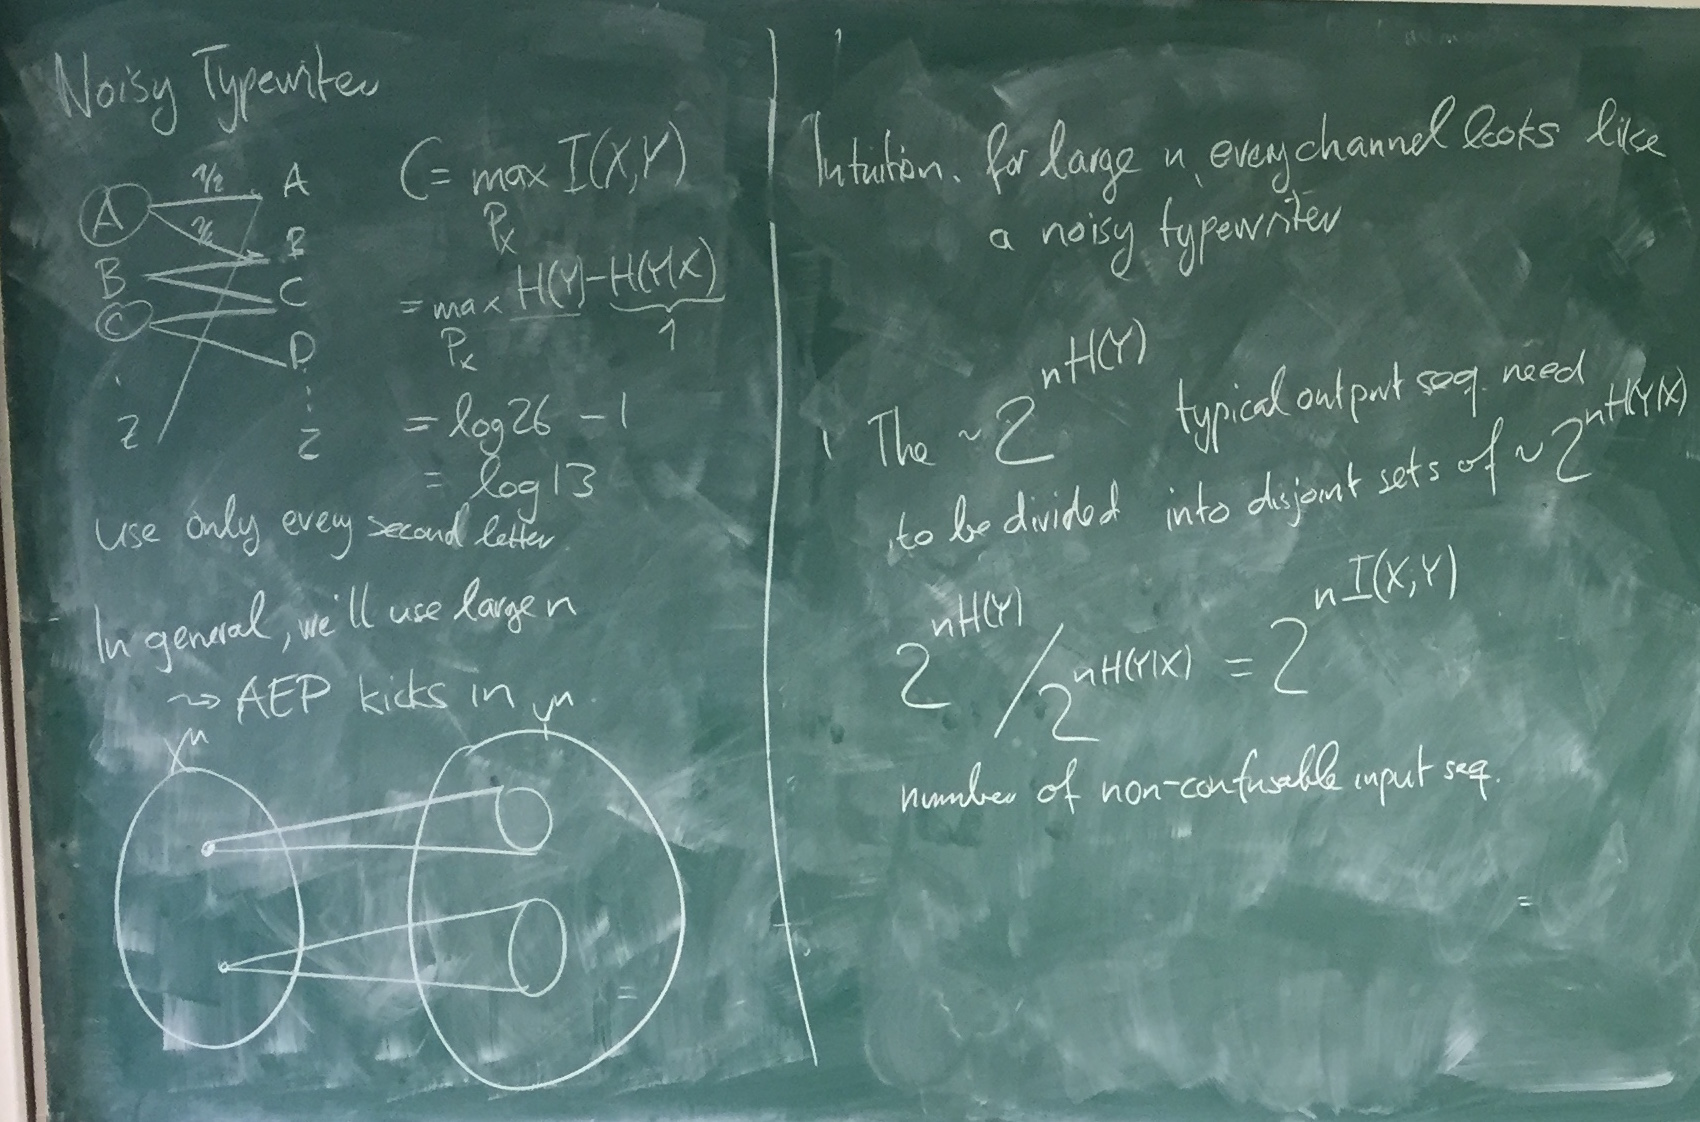 Noisy Typewriter
1/2 A
A
1/2 B
B C
C
D
Z Z
C = max I(X,Y)
P_X
= max H(Y) - H(Y|X)
P_X 1
= log 26 - 1
= log 13
use only every second letter
In general, we'll use large n
⇝ AEP kicks in
X^n Y^n
Intuition. for large n, every channel looks like
a noisy typewriter
The ~2^{nH(Y)} typical output seq. need
to be divided into disjoint sets of ~2^{nH(Y|X)}
2^{nH(Y)} / 2^{nH(Y|X)} = 2^{nI(X;Y)}
number of non-confusable input seq.